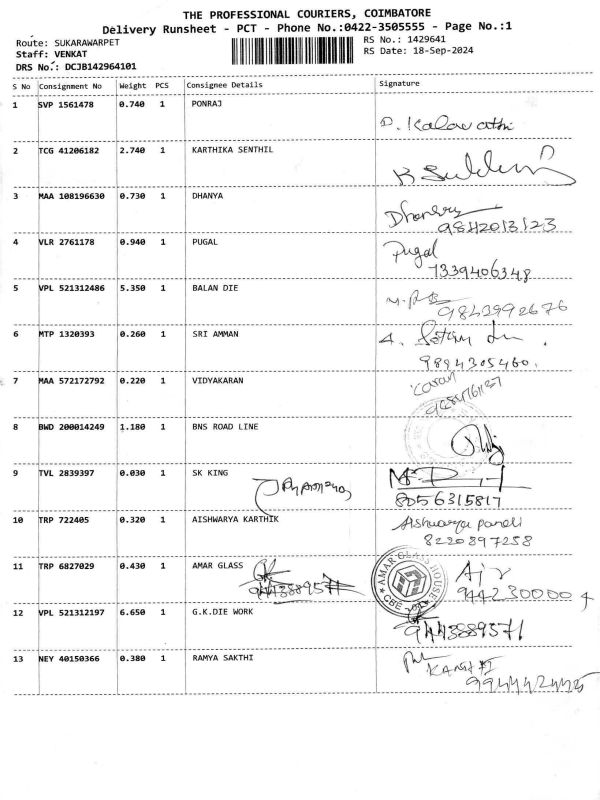 THE PROFESSIONAL COURIERS, COIMBATORE
Delivery Runsheet - PCT - Phone No.:0422-3505555 - Page No.:1
Route: SUKARAWARPET RS No.: 1429641
Staff: VENKAT RS Date: 18-Sep-2024
DRS No.: DCJB142964101
S No Consignment No Weight PCS Consignee Details Signature
1 SVP 1561478 0.740 1 PONRAJ
D. Kalavathi
2 TCG 41206182 2.740 1 KARTHIKA SENTHIL
3 MAA 108196630 0.730 1 DHANYA
9842013123
4 VLR 2761178 0.940 1 PUGAL Pugal
7339406348
5 VPL 521312486 5.350 1 BALAN DIE
9843992676
6 MTP 1320393 0.260 1 SRI AMMAN
9894305460.
7 MAA 572172792 0.220 1 VIDYAKARAN Karan
8 BWD 200014249 1.180 1 BNS ROAD LINE
9 TVL 2839397 0.030 1 SK KING
8056315817
10 TRP 722405 0.320 1 AISHWARYA KARTHIK Aishwarya
8220897258
11 TRP 6827029 0.430 1 AMAR GLASS AMAR GLASS HOUSE CBE
9443889571 9442300004
12 VPL 521312197 6.650 1 G.K.DIE WORK
9443889571
13 NEY 40150366 0.380 1 RAMYA SAKTHI